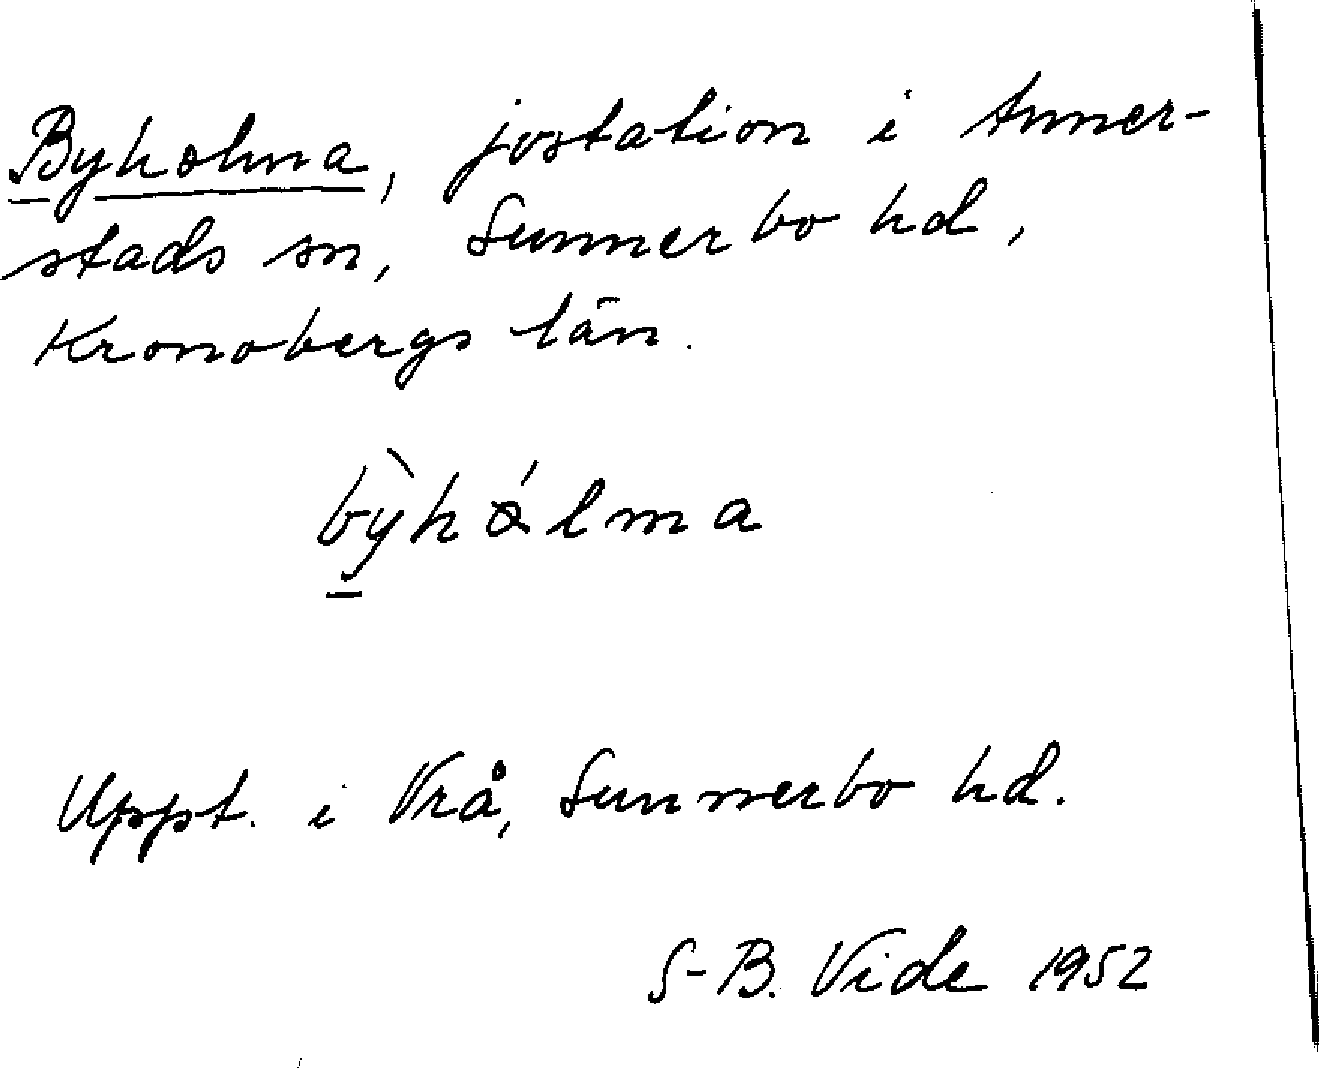 Byholma, jvstation i Anner-
stads sn, Sunnerbo hd,
Kronobergs län.
bỳhálma
Uppt. i Vrå, Sunnerbo hd.
S-B. Vide 1952